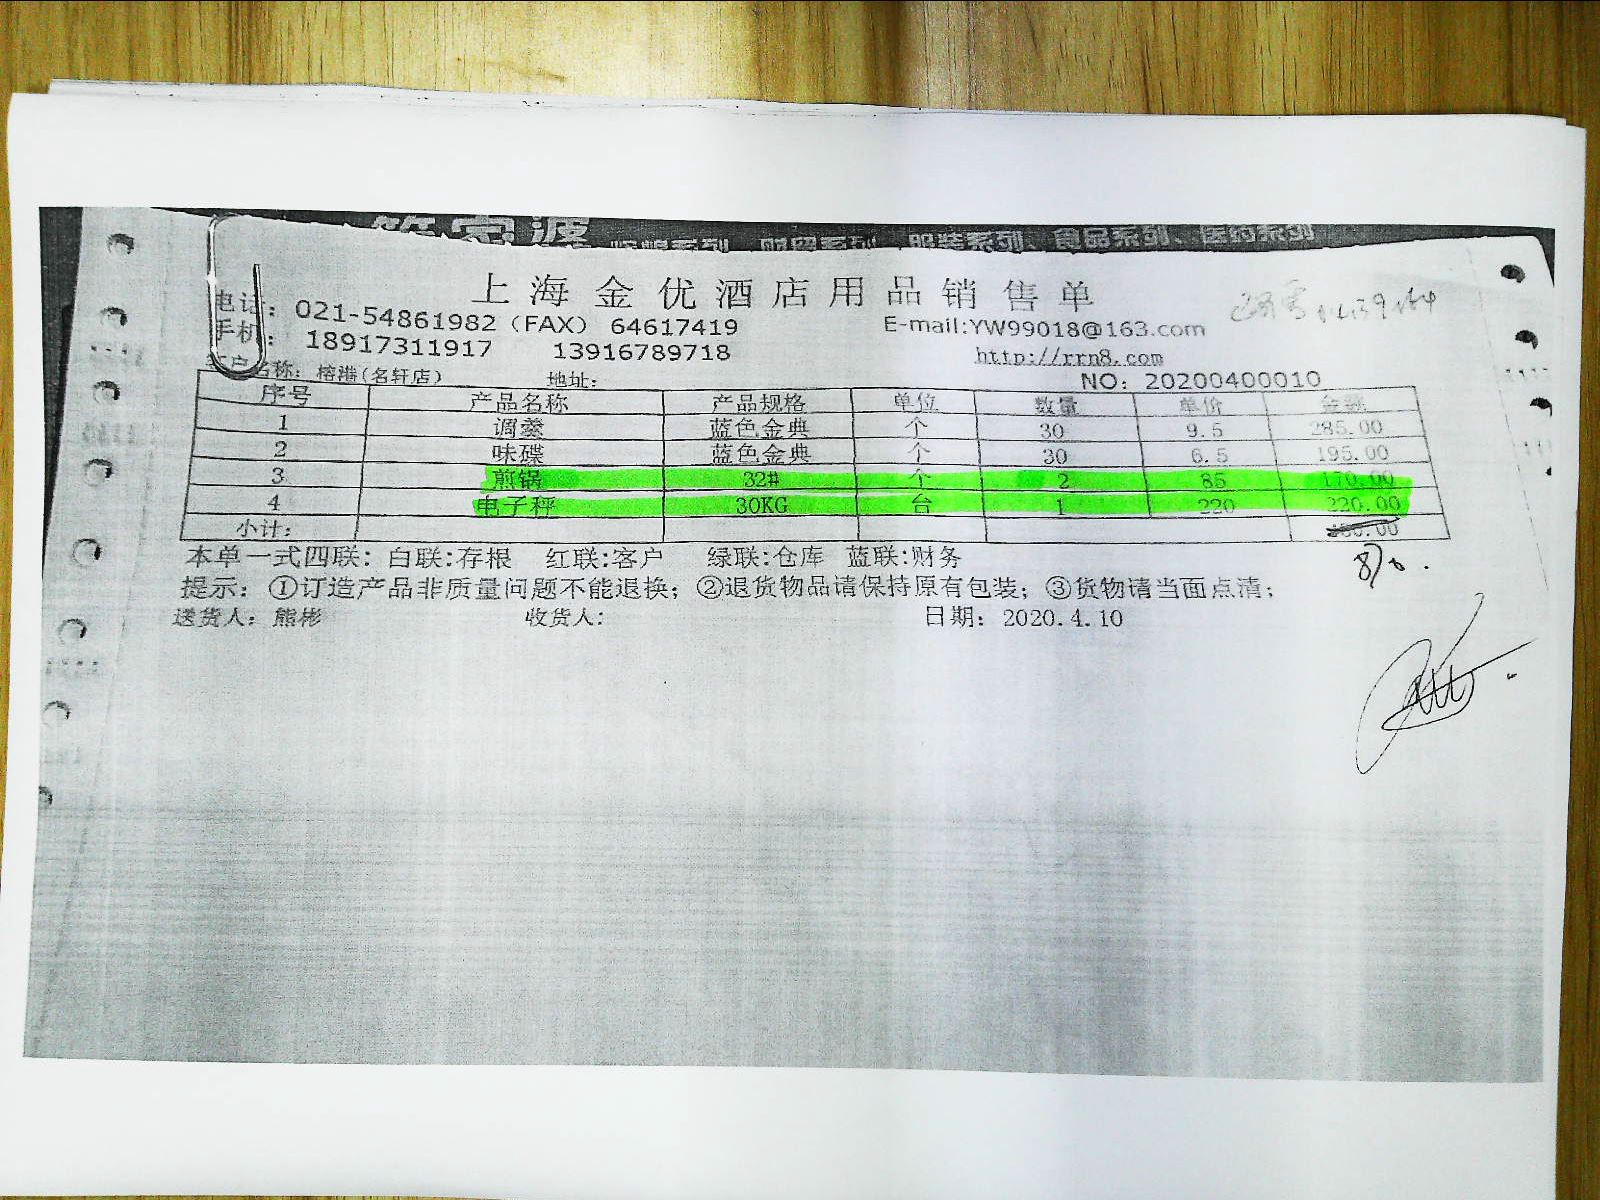 管家婆
服装系列、食品系列、医药系列
上海金优酒店用品销售单
电话：021-54861982（FAX） 64617419 E-mail:YW99018@163.com
手机：18917311917 13916789718 http://rrn8.com
客户名称：榕港(名轩店) 地址： NO：20200400010
序号 产品名称 产品规格 单位 数量 单价 金额
1 调羹 蓝色金典 个 30 9.5 285.00
2 味碟 蓝色金典 个 30 6.5 195.00
3 煎锅 32# 个 2 85 170.00
4 电子秤 30KG 台 1 220 220.00
小计：
870.
本单一式四联：白联:存根 红联:客户 绿联:仓库 蓝联:财务
提示：①订造产品非质量问题不能退换；②退货物品请保持原有包装；③货物请当面点清；
送货人：熊彬 收货人： 日期：2020.4.10